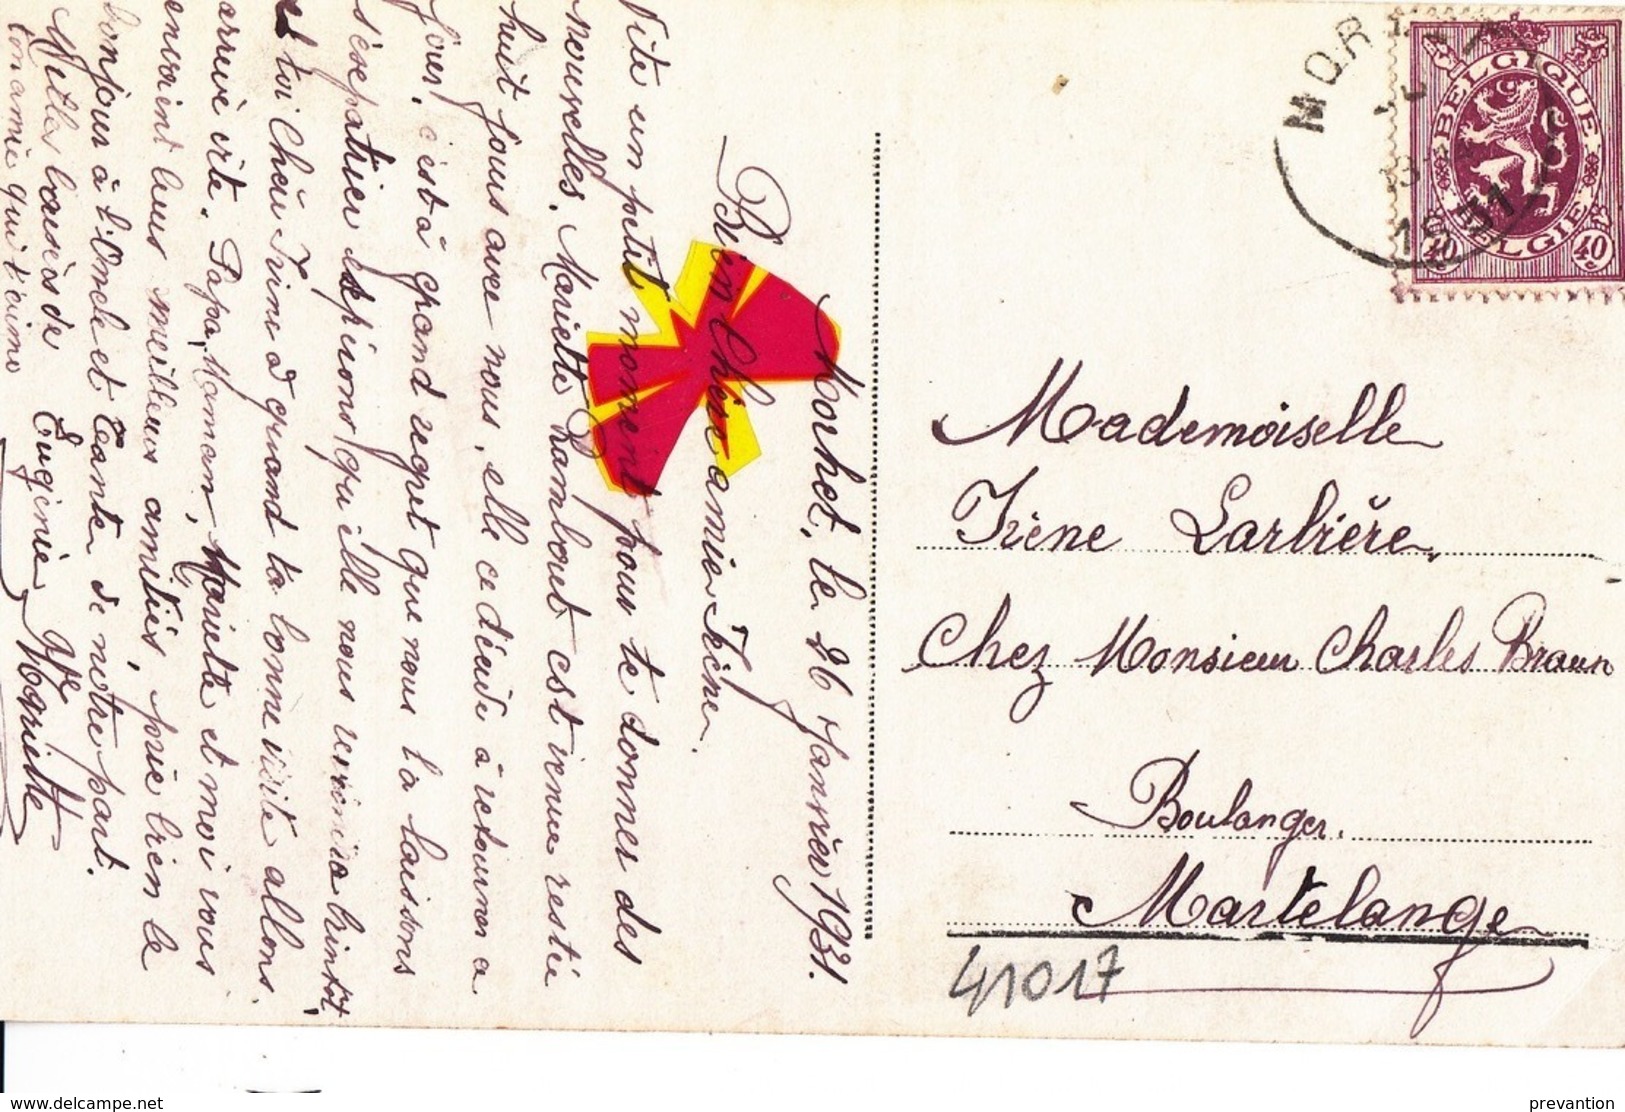 Morhet, le 26 Janvier 1931.
Bien Chère amie Irène.
Vite un petit moment pour te donner des
nouvelles, Mariette Rambout est venue restée
huit jours avec nous, elle ce décidé à retourner a
jour, c'est à grand regret que nous la laissons
s'ésepatrier espirons qu'elle nous reviendra bientôt,
et toi Chèir Irène à quand ta bonne visite allons
arrivé vite. Papa, Maman, Mariette et moi vous
envoient leurs meilleurs amitiés, prie bien le
bonjour à l'Oncle et Tante de notre part.
Mille baisés de
ton amie qui t'aime
Eugénie Mariette
BELGIQUE
BELGIE
40
40
MORHET
1931
Mademoiselle
Irène Larbière,
Chez Monsieur Charles Braun
Boulanger.
Martelange
41017
www.delcampe.net
prevantion